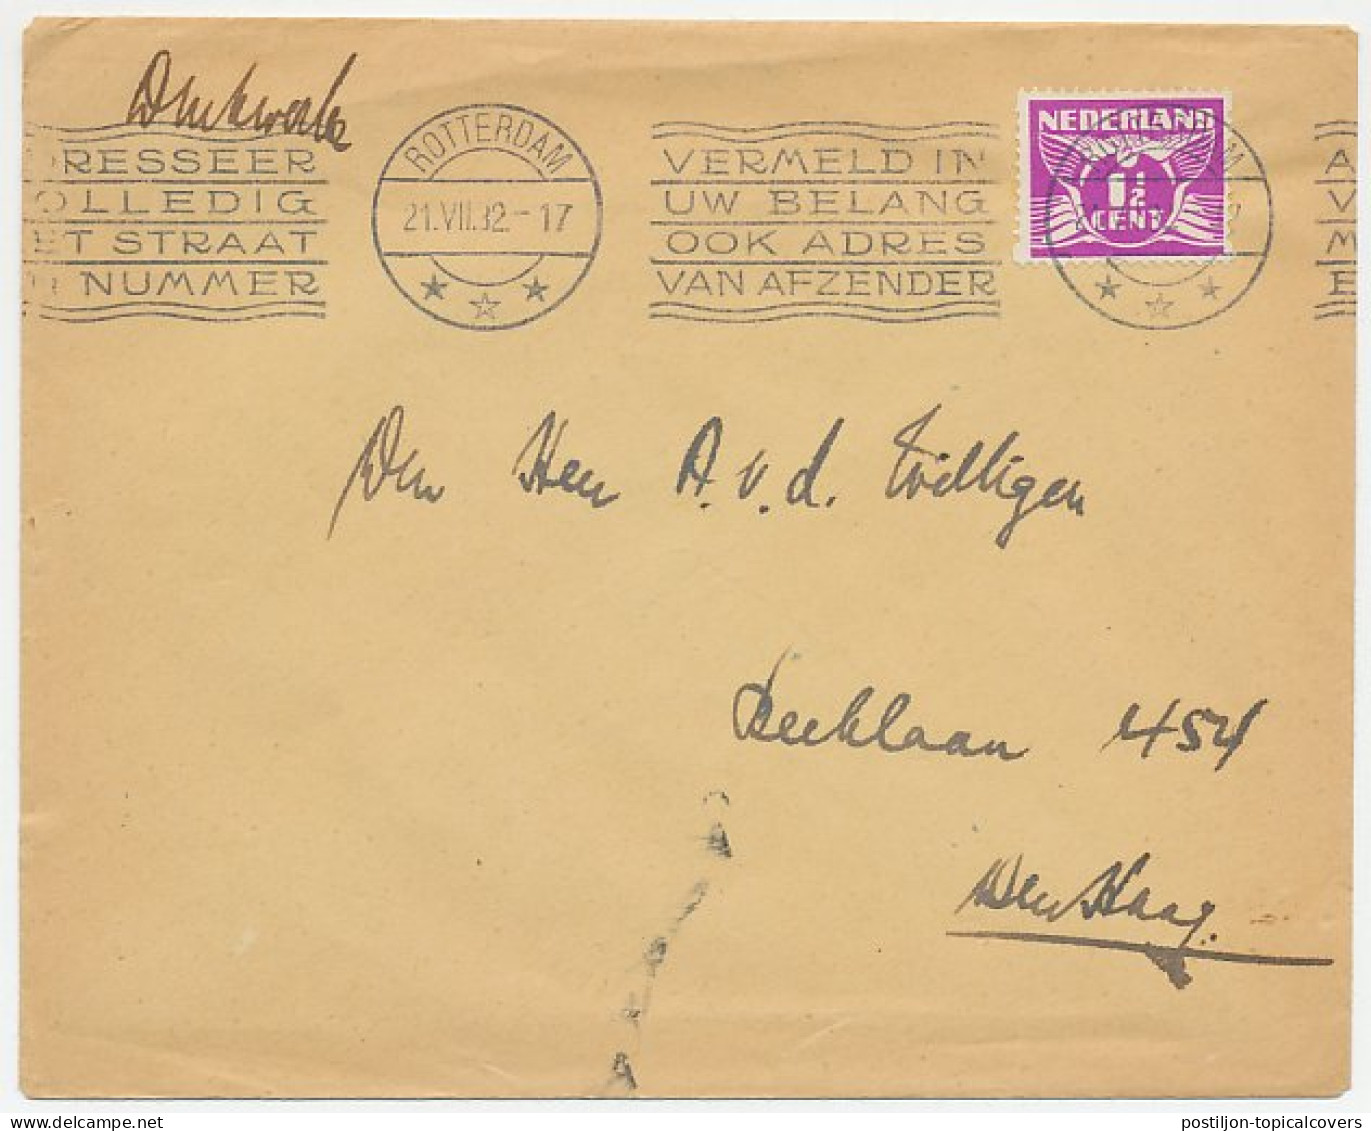 Drukwerk
DRESSEER
OLLEDIG
ET STRAAT
NUMMER
ROTTERDAM
21.VII.32.-17
VERMELD IN
UW BELANG
OOK ADRES
VAN AFZENDER
NEDERLAND
1½
CENT
A
V
M
E
Den Heer A.v.d. Willigen
Beeklaan 454
Den Haag.
postiljon-topicalcovers